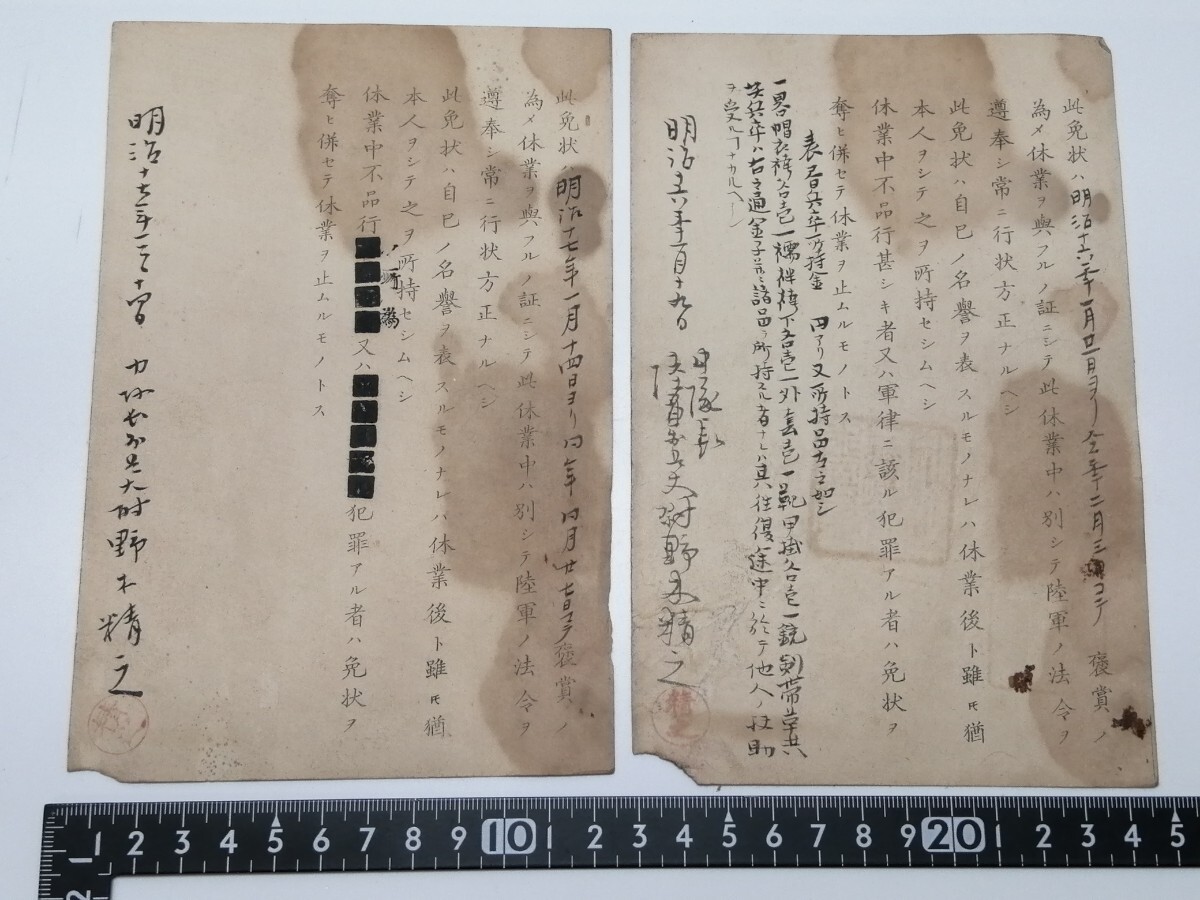 此免状ハ明治十六年一月廿一日ヨリ仝年二月三日マテ褒賞ノ
為メ休業ヲ與フルノ証ニシテ此休業中ハ別シテ陸軍ノ法令ヲ
遵奉シ常ニ行状方正ナルヘシ
此免状ハ自己ノ名譽ヲ表スルモノナレハ休業後ト雖モ猶
本人ヲシテ之ヲ所持セシムヘシ
休業中不品行甚シキ者又ハ軍律ニ該ル犯罪アル者ハ免状ヲ
奪ヒ併セテ休業ヲ止ムルモノトス
表名兵卒所持金 円アリ又所持品左之如シ
一略帽衣袴各壱一襦袢袴下各壱一外套壱一靴甲掛各壱一銃剣帯革共
兵卒ハ右之通金子并ニ諸品ヲ所持スル者ナレハ其往復途中ニ於テ他人ノ扶助
ヲ受ルコナカルヘシ
明治十六年一月十九日
中隊長
陸軍歩兵大尉野木精之
此免状ハ明治十七年一月十四日ヨリ同年同月廿七日マテ褒賞ノ
為メ休業ヲ與フルノ証ニシテ此休業中ハ別シテ陸軍ノ法令ヲ
遵奉シ常ニ行状方正ナルヘシ
此免状ハ自己ノ名譽ヲ表スルモノナレハ休業後ト雖モ猶
本人ヲシテ之ヲ所持セシムヘシ
休業中不品行ノ所為又ハ犯罪アル者ハ免状ヲ
奪ヒ併セテ休業ヲ止ムルモノトス
明治十七年一月十四日 中隊長歩兵大尉野木精之
1 2 3 4 5 6 7 8 9 10 1 2 3 4 5 6 7 8 9 20 1 2 3 4 5
1
2